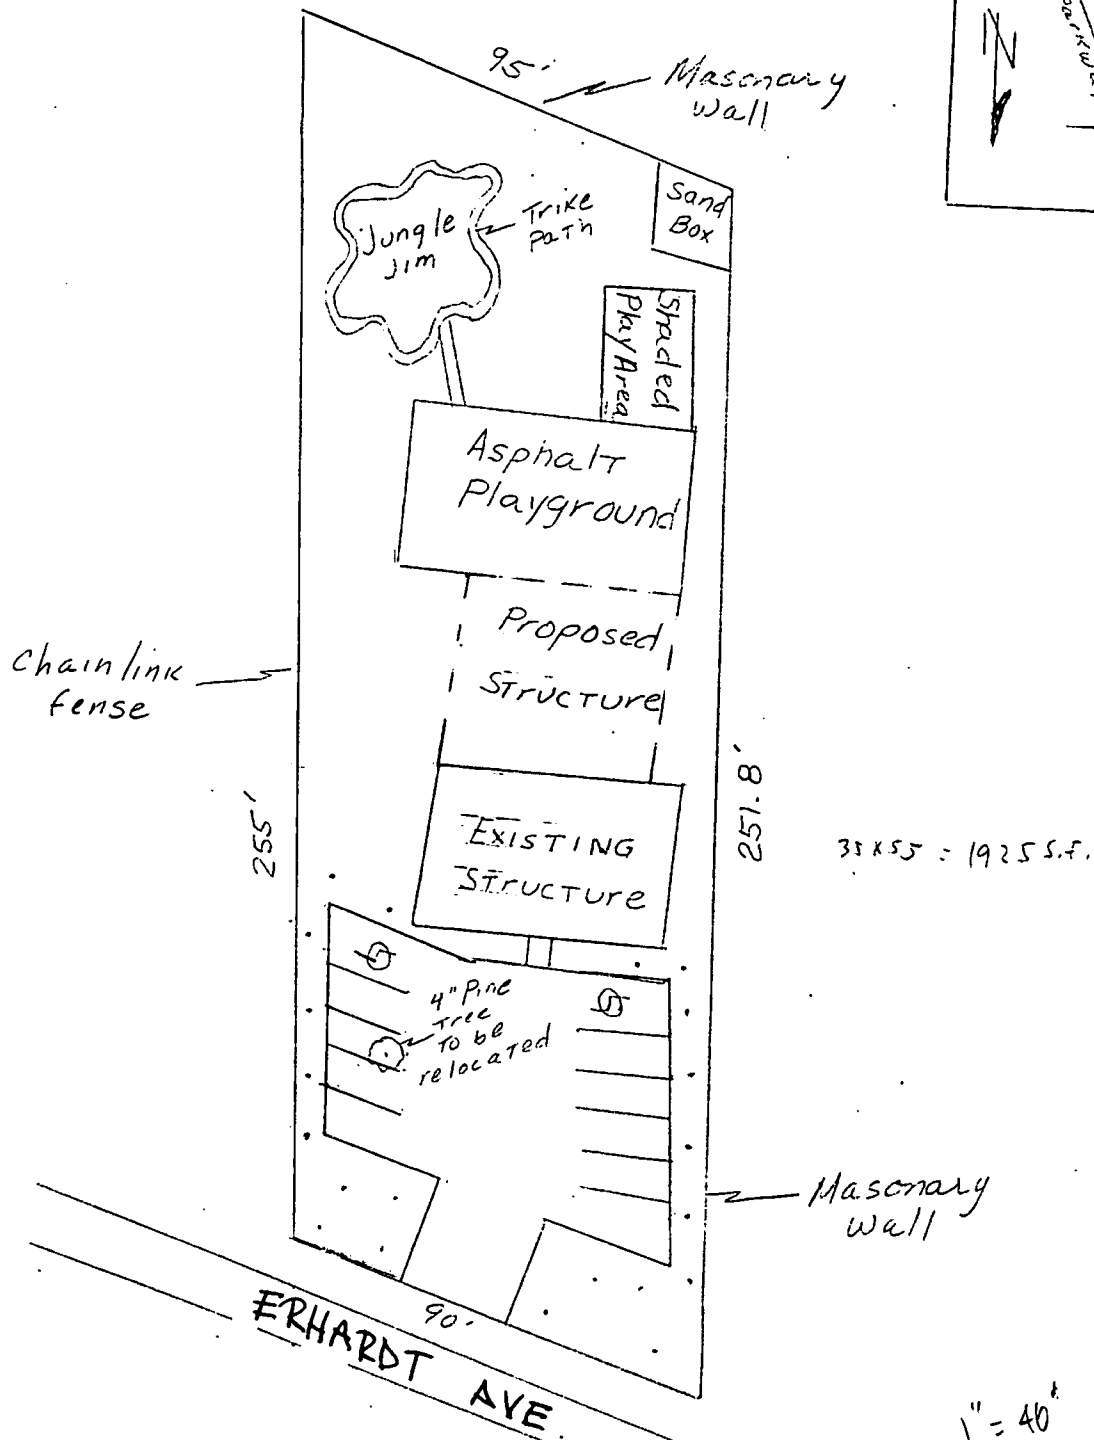 95'
Masonary
Wall
N
parkway
Sand
Box
Jungle
Jim
Trike
Path
Shaded
Play Area
Asphalt
Playground
Proposed
Structure
Chain link
fense
255'
251.8'
EXISTING
Structure
35 x 55 = 1925 S.F.
4" Pine
Tree
To be
relocated
Masonary
Wall
90'
ERHARDT AVE.
1" = 40'